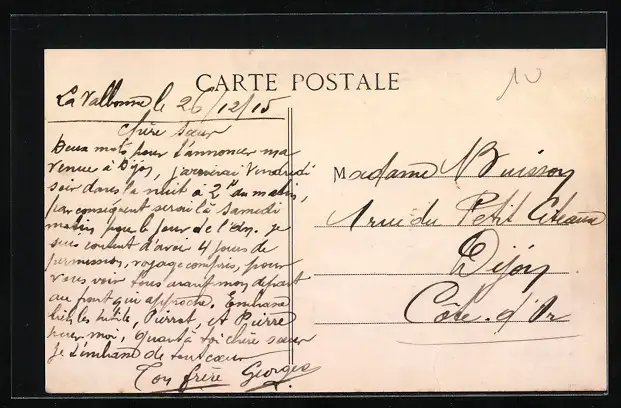 CARTE POSTALE
La Valbonne le 26/12/15
chère sœur
Deux mots pour t'annoncer ma
venue à Dijon, j'arriverai Vendredi
soir dans la nuit à 2h du matin,
par conséquent serai là Samedi
matin pour le Jour de l'An. Je
suis content d'avoir 4 jours de
permission, voyage compris, pour
vous voir tous avant mon départ
au front qui approche. Embrasse
bien les Pierrot, et Pierre
pour moi, Quant à toi chère sœur
Je t'embrasse de tout cœur
Ton frère Georges
Madame Buisson
1 rue du Petit Citeaux
Dijon
Côte-d'Or